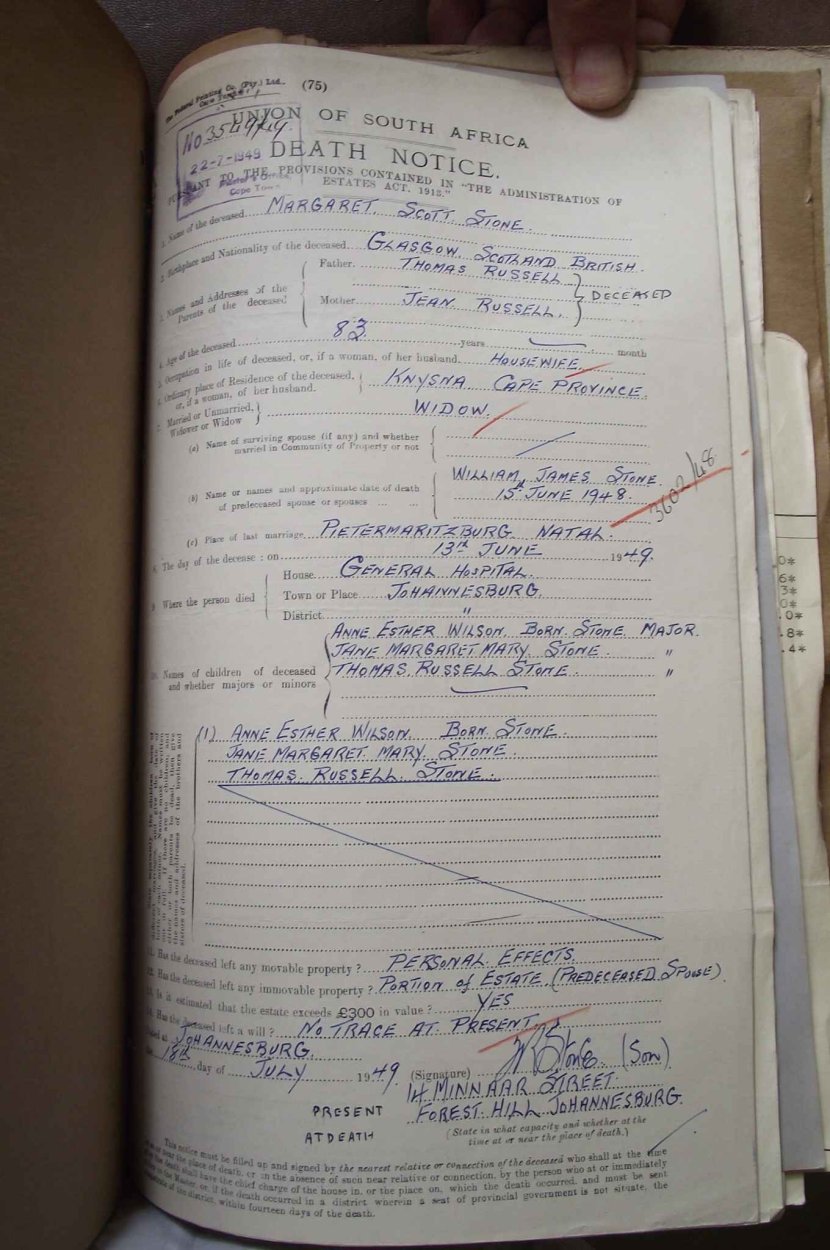 The Federal Printing Co. (Pty.) Ltd., (75)
Cape Town
UNION OF SOUTH AFRICA
No 3549/49
22-7-1949
Master's Office
Cape Town
DEATH NOTICE.
PURSUANT TO THE PROVISIONS CONTAINED IN "THE ADMINISTRATION OF
ESTATES ACT, 1913."
1. Name of the deceased MARGARET. SCOTT. STONE.
2. Birthplace and Nationality of the deceased GLASGOW, SCOTLAND. BRITISH.
Father THOMAS RUSSELL
Names and Addresses of the
Parents of the deceased
DECEASED
Mother JEAN RUSSELL.
4. Age of the deceased 83 years month
5. Occupation in life of deceased, or, if a woman, of her husband. HOUSEWIFE.
6. Ordinary place of Residence of the deceased,
or, if a woman, of her husband. KNYSNA CAPE PROVINCE.
7. Married or Unmarried,
Widower or Widow WIDOW.
(a) Name of surviving spouse (if any) and whether
married in Community of Property or not
(b) Name or names and approximate date of death
of predeceased spouse or spouses ... ...
WILLIAM JAMES STONE.
15th JUNE 1948.
3602/48
(c) Place of last marriage PIETERMARITZBURG NATAL.
8. The day of the decease : on 13th JUNE 1949.
House GENERAL HOSPITAL.
9 Where the person died Town or Place JOHANNESBURG.
District "
10. Names of children of deceased
and whether majors or minors
ANNE ESTHER WILSON. BORN. STONE. MAJOR.
JANE MARGARET MARY. STONE. "
THOMAS. RUSSELL STONE. "
(1) ANNE ESTHER WILSON. BORN. STONE.
JANE MARGARET MARY. STONE.
THOMAS. RUSSELL. STONE.
the names and addresses of the brothers and
sisters of deceased.
11. Has the deceased left any movable property ? PERSONAL EFFECTS.
12. Has the deceased left any immovable property ? PORTION of ESTATE. (PREDECEASED. SPOUSE).
13. Is it estimated that the estate exceeds £300 in value ? YES
14. Has the deceased left a will ? NO TRACE AT PRESENT.
Dated at JOHANNESBURG.
the 18th day of JULY 1949
(Signature) Stone (Son)
14 MINNAAR STREET.
PRESENT
AT DEATH
FOREST. HILL JOHANNESBURG.
(State in what capacity and whether at the
time at or near the place of death.)
This notice must be filled up and signed by the nearest relative or connection of the deceased who shall at the time
at or near the place of death, or in the absence of such near relative or connection, by the person who at or immediately
after the death shall have the chief charge of the house in, or the place on, which the death occurred, and must be sent
to the Master, or, if the death occurred in a district wherein a seat of provincial government is not situate, the
Magistrate of the district, within fourteen days of the death.
0*
6*
3*
0*
.0*
.8*
.4*